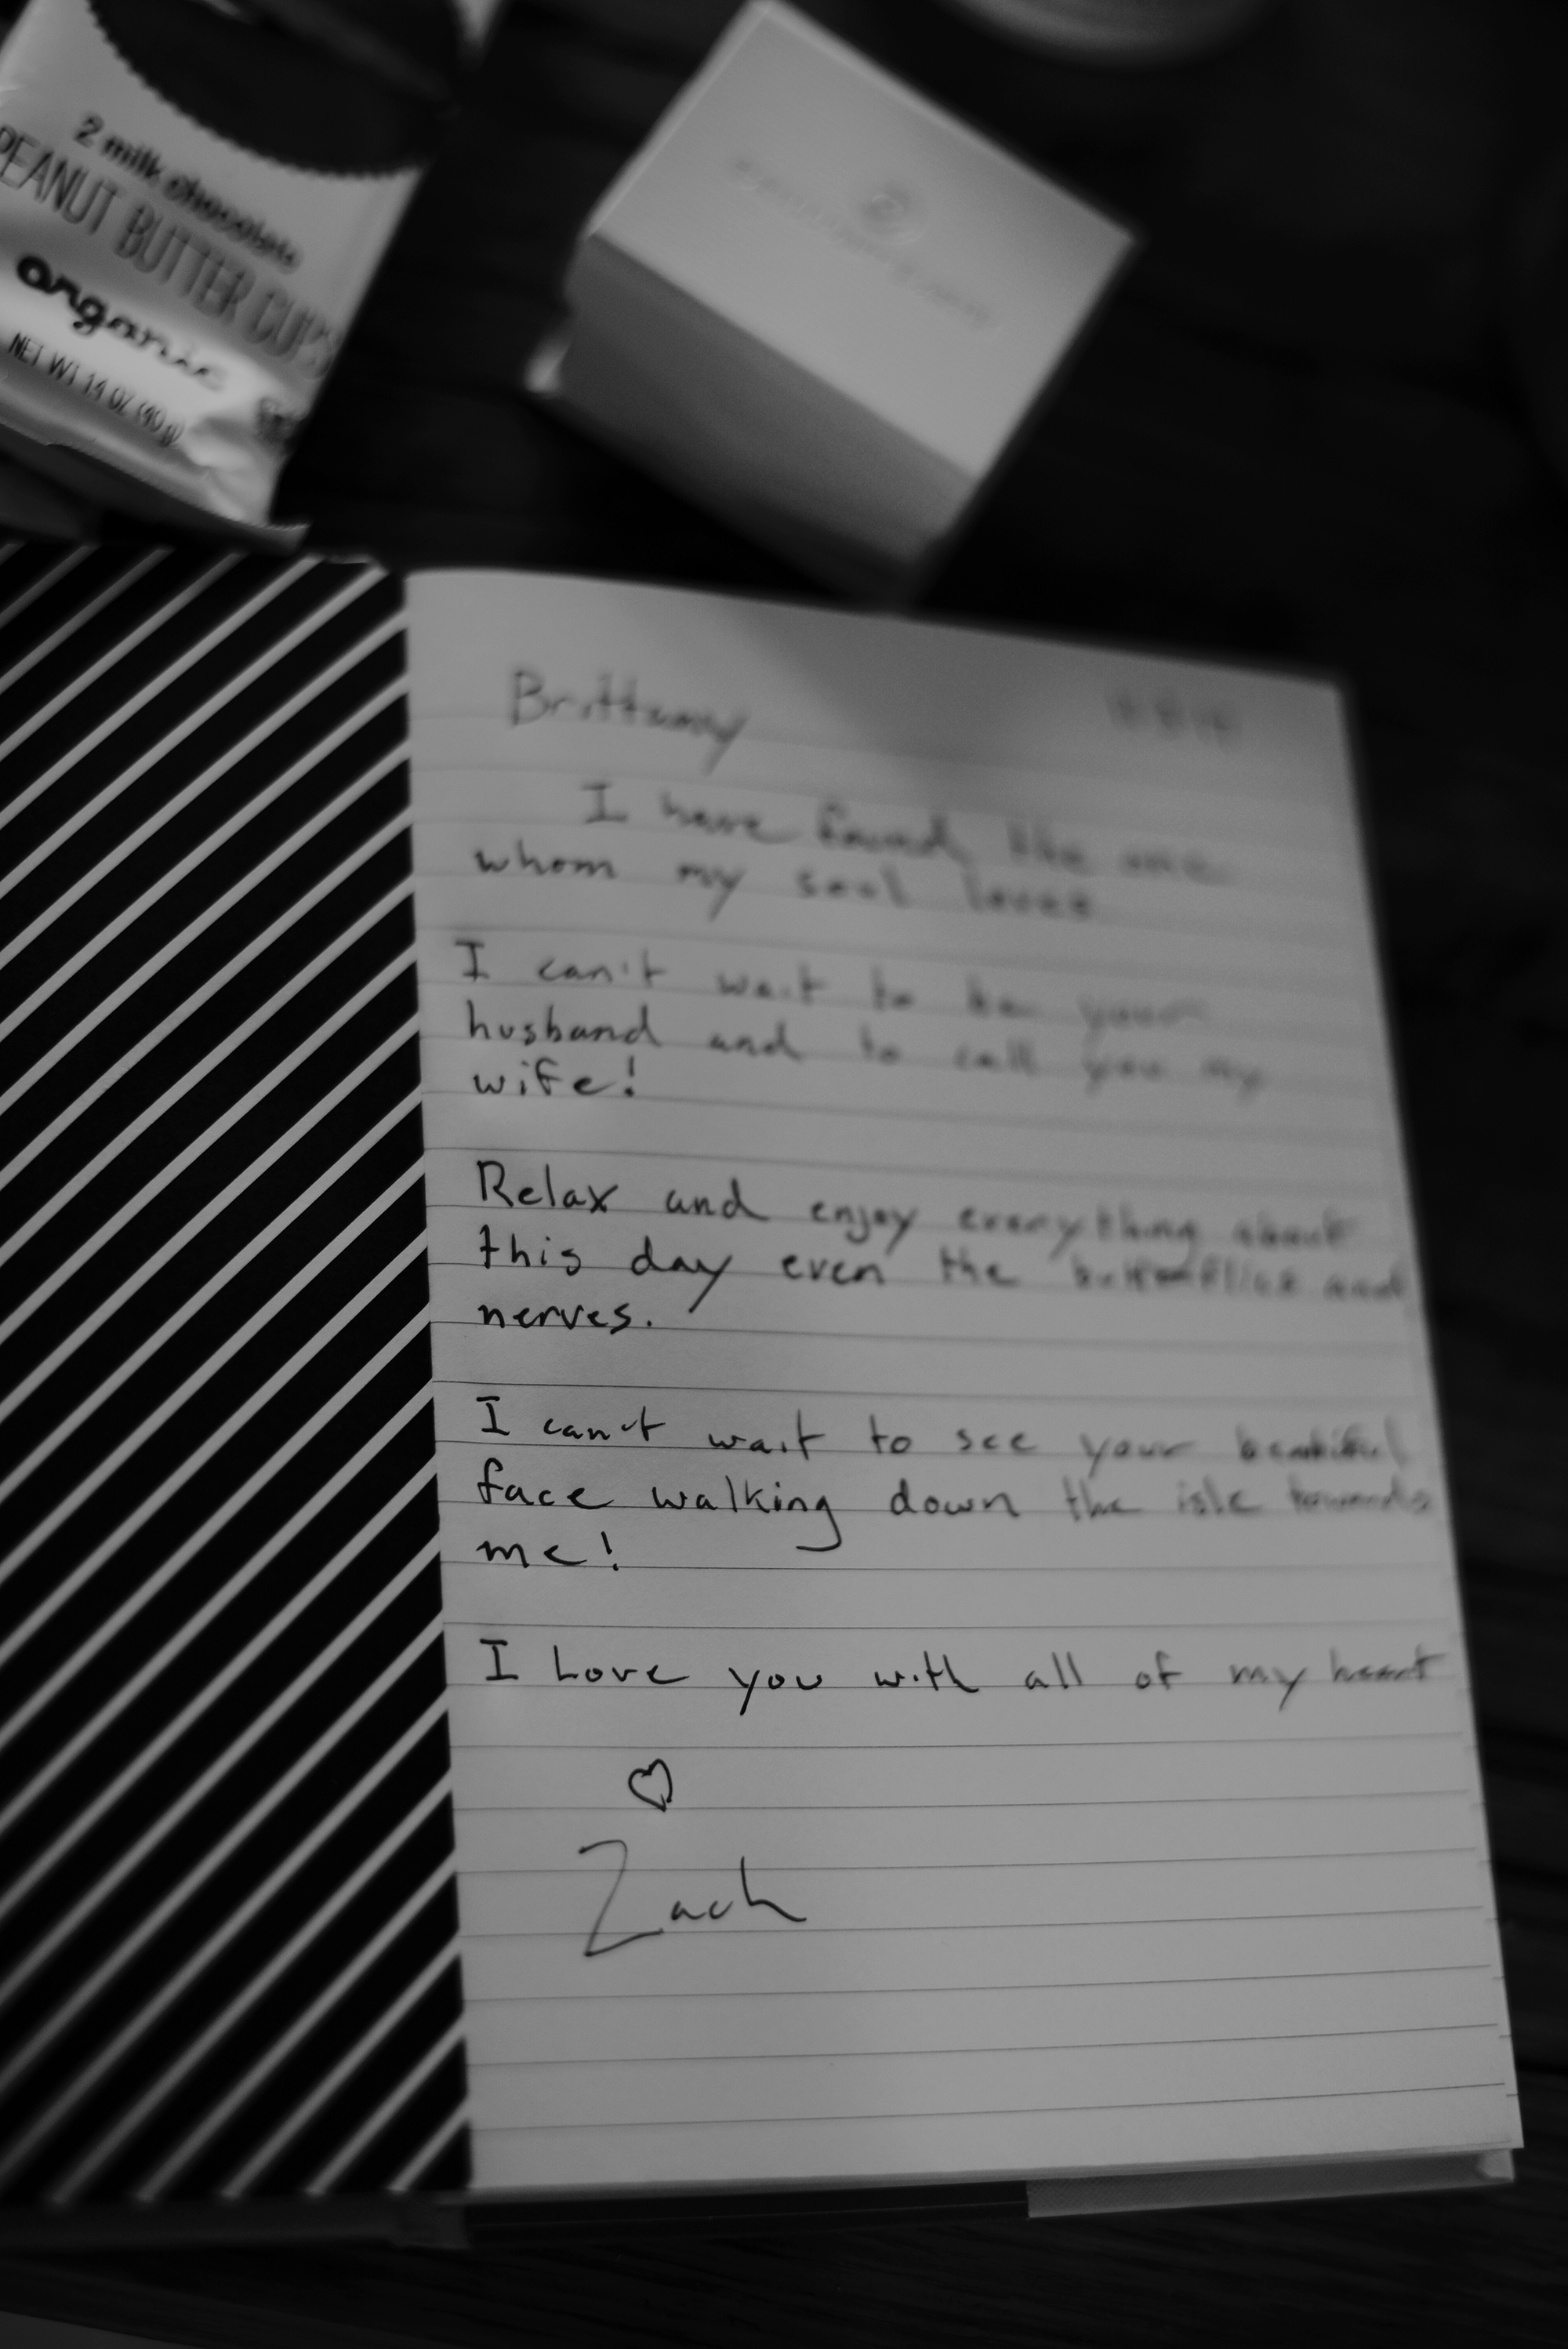 2 milk chocolate
PEANUT BUTTER CUPS
organic
NET WT 1.4 OZ (40 g)
Brittany
I have found the one
whom my soul loves
I can't wait to be your
husband and to call you my
wife!
Relax and enjoy everything about
this day even the butterflies and
nerves.
I can't wait to see your beautiful
face walking down the isle towards
me!
I Love you with all of my heart
♡
Zach